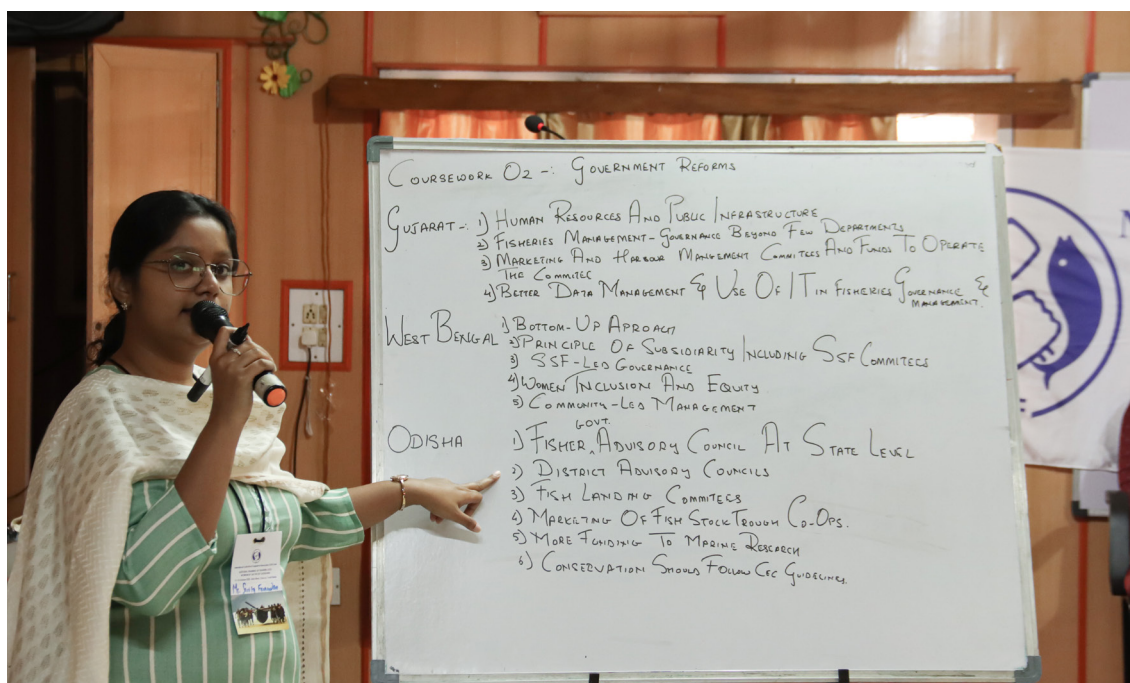 COURSEWORK 02 -: GOVERNMENT REFORMS
GUJARAT -. 1) HUMAN RESOURCES AND PUBLIC INFRASTRUCTURE
2) FISHERIES MANAGEMENT - GOVERNANCE BEYOND FEW DEPARTMENTS
3) MARKETING AND HARBOUR MANGEMENT COMMITEES AND FUNDS TO OPERATE
THE COMMITEE
4) BETTER DATA MANAGEMENT & USE OF IT IN FISHERIES GOVERNANCE &
MANAGEMENT.
WEST BENGAL 1) BOTTOM-UP APROACH
2) PRINCIPLE OF SUBSIDIARITY INCLUDING SSF COMMITEES
3) SSF-LED GOVERNANCE
4) WOMEN INCLUSION AND EQUITY
5) COMMUNITY-LED MANAGEMENT
GOVT.
ODISHA 1) FISHER ADVISORY COUNCIL AT STATE LEVEL
2) DISTRICT ADVISORY COUNCILS
3) FISH LANDING COMMITEES
4) MARKETING OF FISH STOCK TROUGH CO-OPS.
5) MORE FUNDING TO MARINE RESEARCH
6) CONSERVATION SHOULD FOLLOW CEC GUIDELINES.